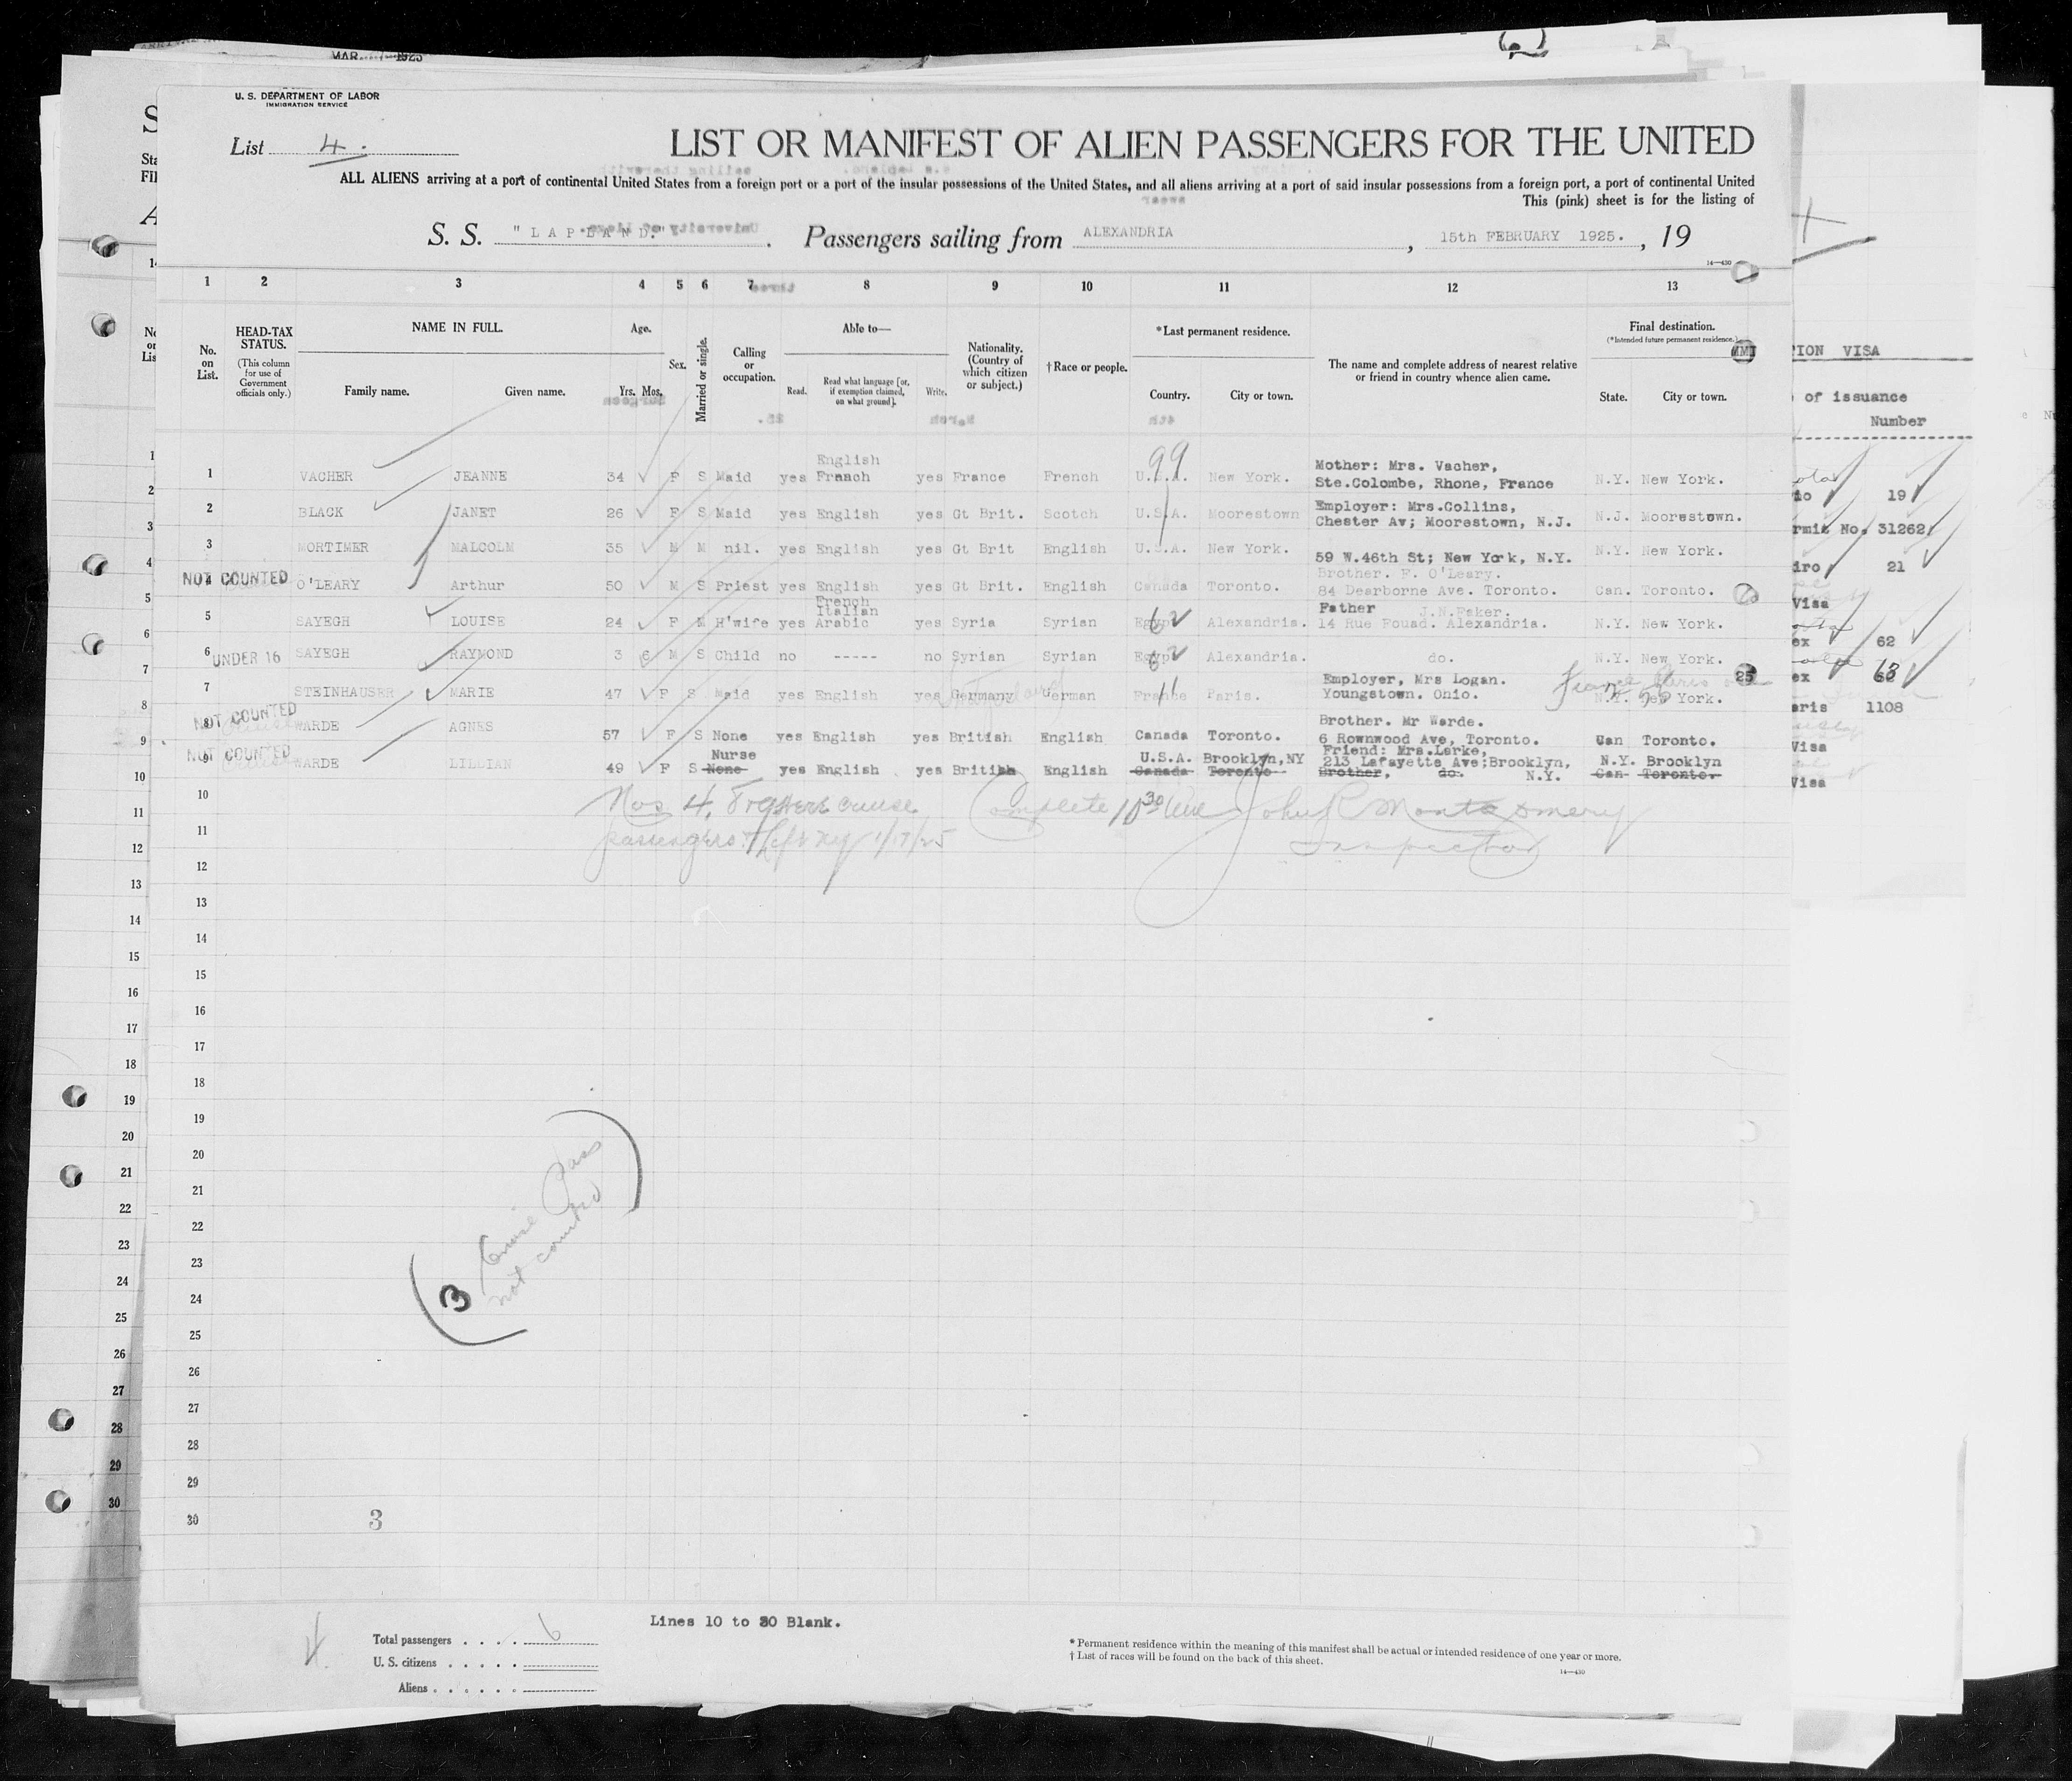 MAR 1925
U. S. DEPARTMENT OF LABOR
IMMIGRATION SERVICE
List 4.
LIST OR MANIFEST OF ALIEN PASSENGERS FOR THE UNITED
ALL ALIENS arriving at a port of continental United States from a foreign port or a port of the insular possessions of the United States, and all aliens arriving at a port of said insular possessions from a foreign port, a port of continental United
This (pink) sheet is for the listing of
S. S. "LAPLAND." Passengers sailing from ALEXANDRIA, 15th FEBRUARY 1925., 19
14—430
1 2 3 4 5 6 7 8 9 10 11 12 13
No. on List. HEAD-TAX STATUS. (This column for use of Government officials only.) NAME IN FULL. Family name. Given name. Age. Yrs. Mos. Sex. Married or single. Calling or occupation. Able to— Read. Read what language [or, if exemption claimed, on what ground]. Write. Nationality. (Country of which citizen or subject.) †Race or people. *Last permanent residence. Country. City or town. The name and complete address of nearest relative or friend in country whence alien came. Final destination. (*Intended future permanent residence.) State. City or town.
ION VISA
of issuance
Number
English 99 Mother: Mrs. Vacher,
1 VACHER JEANNE 34 F S Maid yes French yes France French U.S.A. New York. Ste.Colombe, Rhone, France N.Y. New York.
19
2 BLACK JANET 26 F S Maid yes English yes Gt Brit. Scotch U.S.A. Moorestown Employer: Mrs.Collins,
Chester Av; Moorestown, N.J. N.J. Moorestown.
rmit No. 31262
3 MORTIMER MALCOLM 35 M M nil. yes English yes Gt Brit English U.S.A. New York. 59 W.46th St; New York, N.Y. N.Y. New York.
iro 21
NOT COUNTED Brother. F. O'Leary.
4 O'LEARY Arthur 50 M S Priest yes English yes Gt Brit. English Canada Toronto. 84 Dearborne Ave. Toronto. Can. Toronto.
Visa
French
Italian Father J.N.Faker.
5 SAYEGH LOUISE 24 F M H'wife yes Arabic yes Syria Syrian Egypt Alexandria. 14 Rue Fouad. Alexandria. N.Y. New York.
ex 62
6 UNDER 16 SAYEGH RAYMOND 3 6 M S Child no ----- no Syrian Syrian Egypt Alexandria. do. N.Y. New York.
ex 63
Employer, Mrs Logan. 25
7 STEINHAUSER MARIE 47 F S Maid yes English yes Germany German France Paris. Youngstown. Ohio. N.Y. New York.
aris 1108
NOT COUNTED Brother. Mr Warde.
8 WARDE AGNES 57 F S None yes English yes British English Canada Toronto. 6 Rownwood Ave, Toronto. Can Toronto.
Visa
NOT COUNTED Nurse U.S.A. Brooklyn,NY Friend: Mrs.Larke,
213 Lafayette Ave;Brooklyn, N.Y. N.Y. Brooklyn
9 WARDE LILLIAN 49 F S None yes English yes British English Canada Toronto Brother, do. Can Toronto.
Visa
Nos 4, 8 + 9 were cruise Complete 10 30 John R Montgomery
passengers left NY 1/17/25 Inspector
10
11
12
13
14
15
16
17
18
19
20
21
22
23
24
25
26
27
28
29
30
(3 Cruise Pass
not counted)
3
Lines 10 to 30 Blank.
Total passengers . . . . 6
U. S. citizens . . . . .
Aliens . . . . . .
* Permanent residence within the meaning of this manifest shall be actual or intended residence of one year or more.
† List of races will be found on the back of this sheet.
14—430